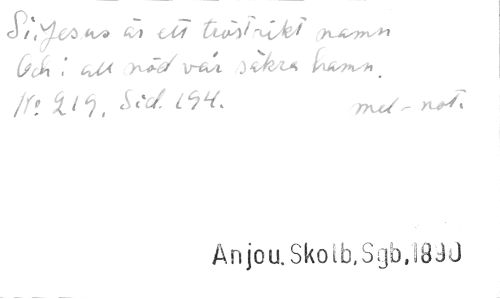 Si, Jesus är ett tröstrikt namn
Och i all nöd vår säkra hamn.
No: 219, Sid. 194.
mel-not.
Anjou, Skolb, Sgb, 1890